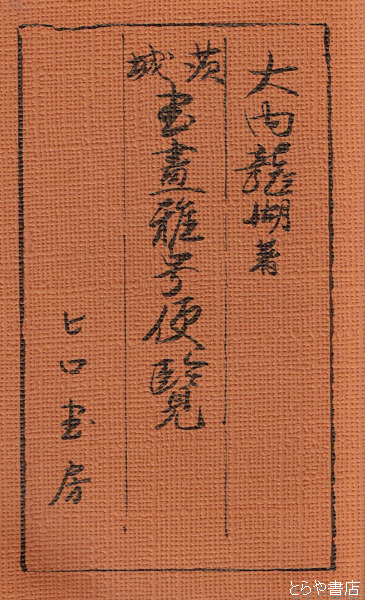 大内龍湖著
茨城
書畫雅号便覧
ヒロ書房
とらや書店